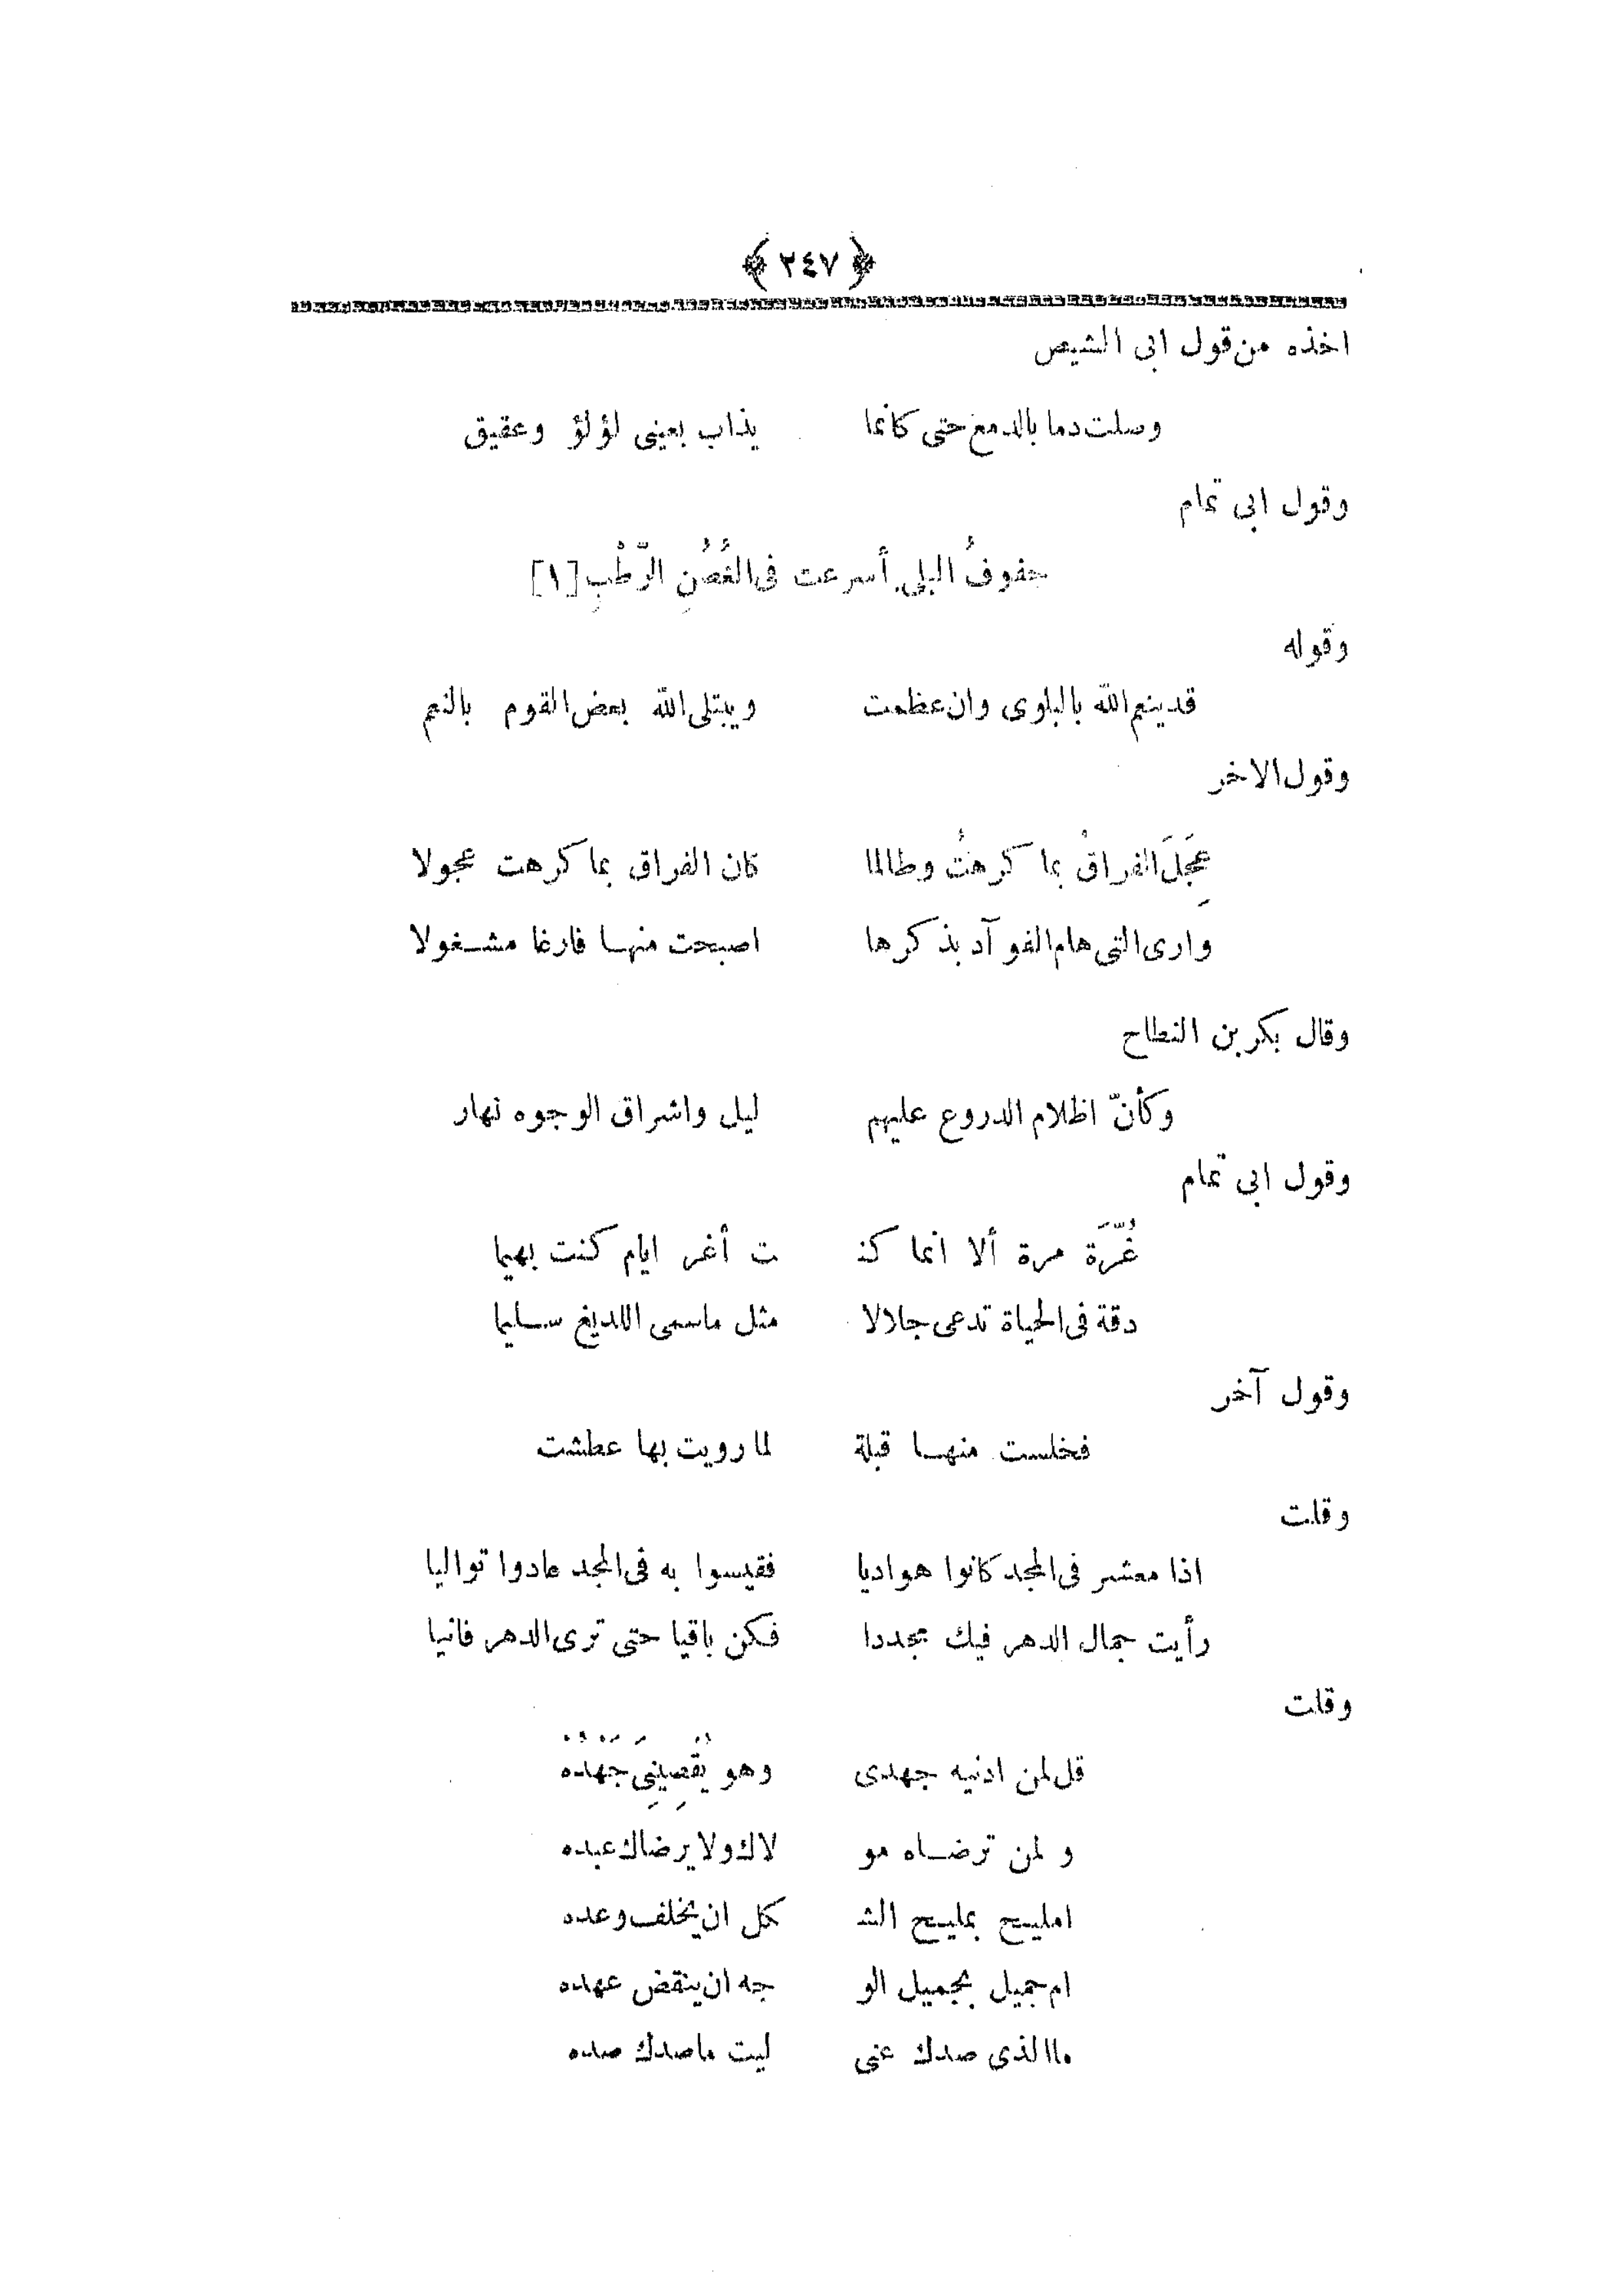 ﴿ ٢٤٧ ﴾
اخذه من قول ابى الشيص
وصلت دما بالدمع حتى كانما يذاب بعينى لؤلؤ وعقيق
وقول ابى تمام
جفوفُ البلى أسرعت فى الغُصُنِ الرّطْبِ [١]
وقوله
قد ينعم الله بالبلوى وان عظمت ويبتلى الله بعض القوم بالنعم
وقول الاخر
عجِّلَ الفراقُ بما كرهتُ وطالما كان الفراق بما كرهت عجولا
وارى التى هام الفوآد بذكرها اصبحت منها فارغا مشغولا
وقال بكر بن النطاح
وكأنّ اظلام الدروع عليهم ليل واشراق الوجوه نهار
وقول ابى تمام
غُرّةَ مرة ألا انما كنـ ـت أغر ايام كنت بهيما
دقة فى الحياة تدعى جلالا مثل ماسمى اللديغ سليما
وقول آخر
فخلست منها قبلة لما رويت بها عطشت
وقلت
اذا معشر فى المجد كانوا هواديا فقيسوا به فى المجد عادوا تواليا
رأيت جمال الدهر فيك مجددا فكن باقيا حتى ترى الدهر فانيا
وقلت
قل لمن ادنيه جهدى وهو يُقْصِينِىَ جَهْدُهْ
و لمن ترضاه مو لاك ولا يرضاك عبده
امليح بمليح الشـ ـكل ان يخلف وعده
ام جميل بجميل الو جه ان ينقض عهده
ماالذى صدك عنى ليت ماصدك صده